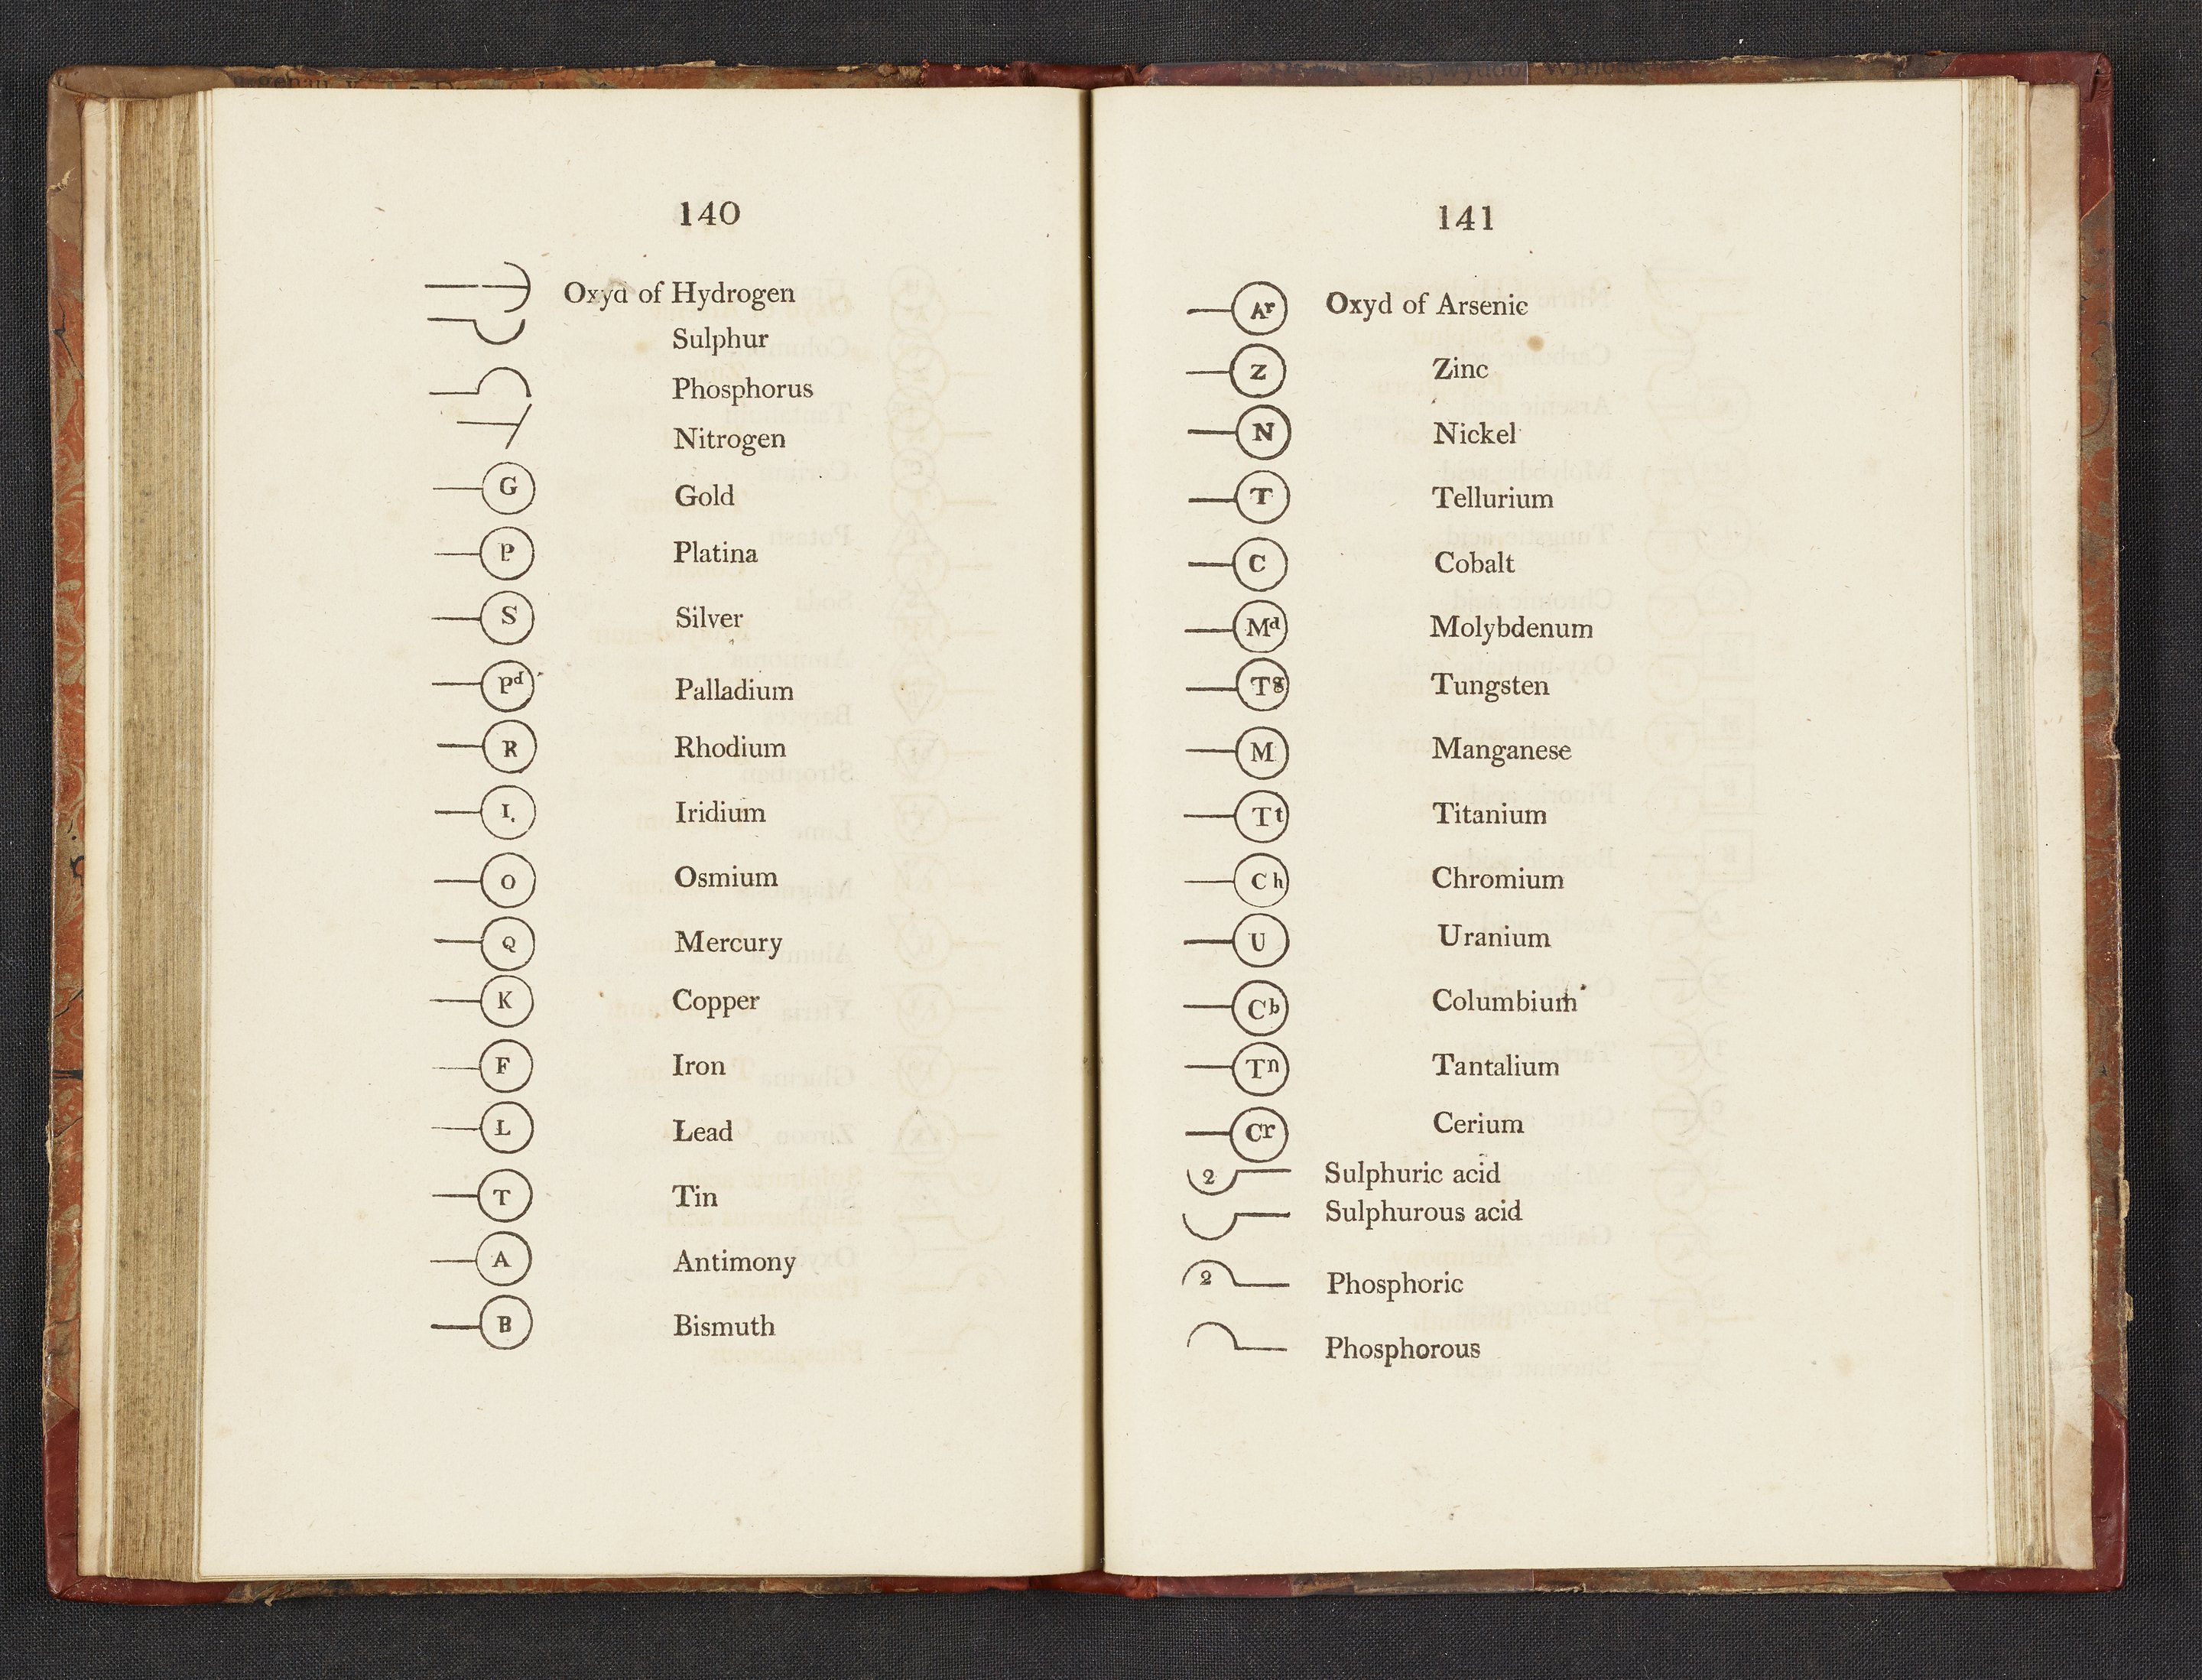 140
Oxyd of Hydrogen
Sulphur
Phosphorus
Nitrogen
G Gold
P Platina
S Silver
Pd Palladium
R Rhodium
I. Iridium
O Osmium
Q Mercury
K Copper
F Iron
L Lead
T Tin
A Antimony
B Bismuth
141
Ar Oxyd of Arsenic
Z Zinc
N Nickel
T Tellurium
C Cobalt
Md Molybdenum
Tg Tungsten
M Manganese
Tt Titanium
Ch Chromium
U Uranium
Cb Columbium
Tn Tantalium
Cr Cerium
2 Sulphuric acid
Sulphurous acid
2 Phosphoric
Phosphorous